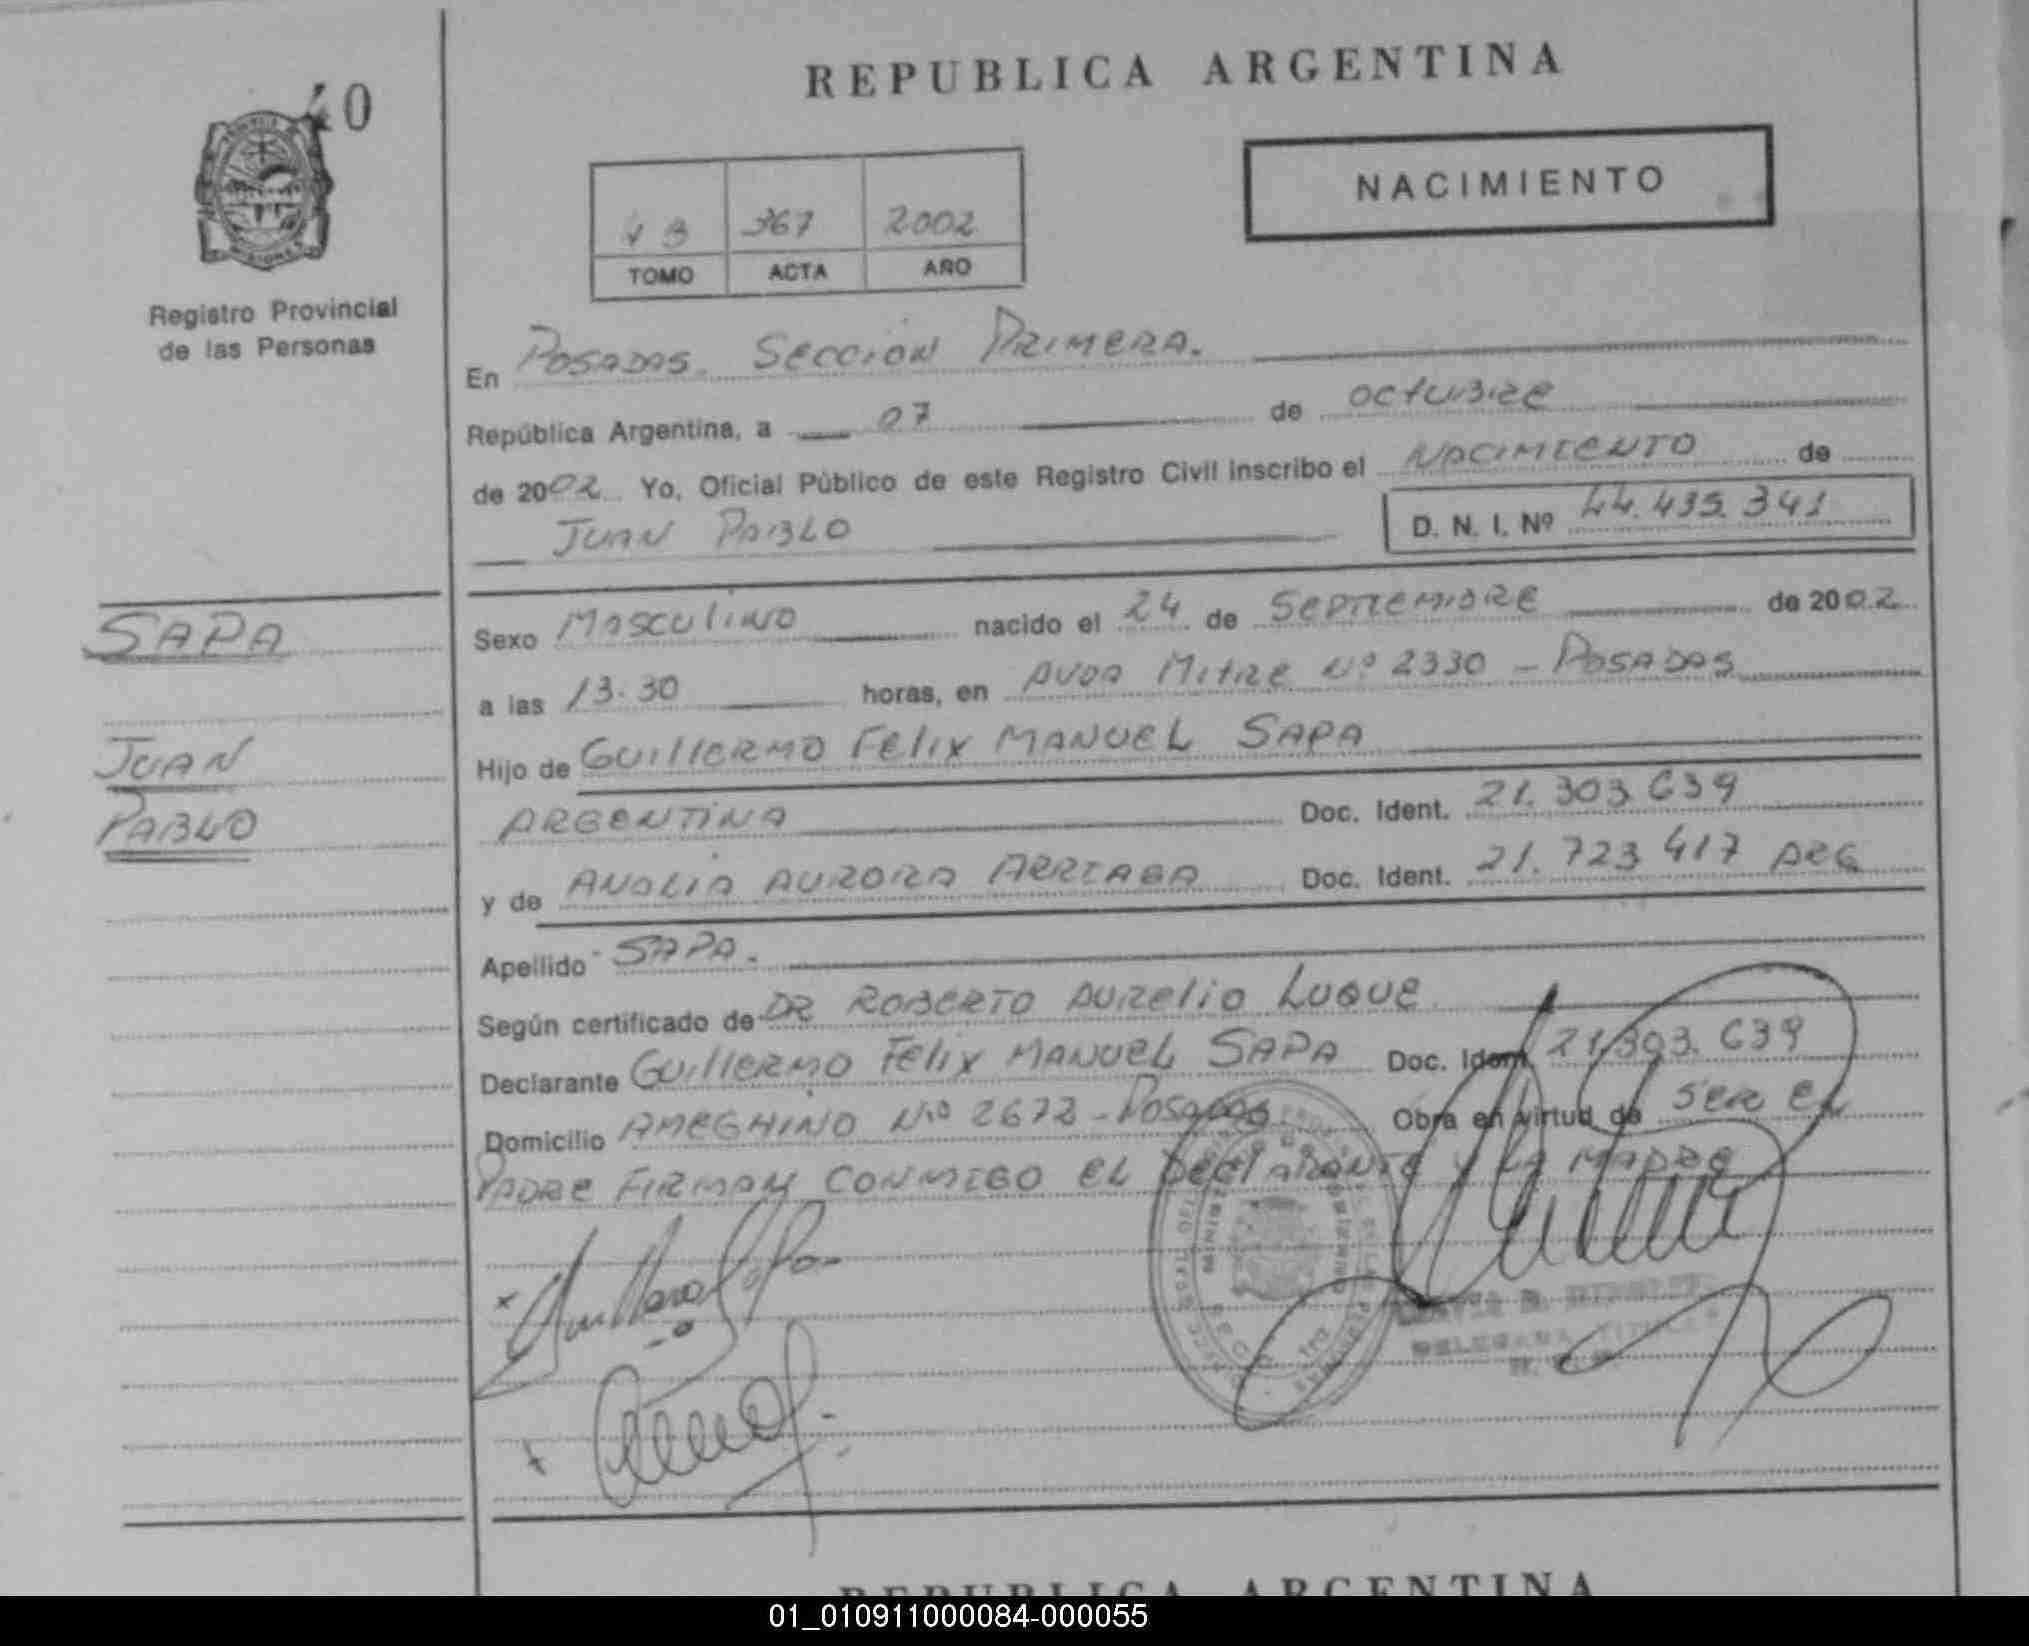 REPUBLICA ARGENTINA
40
NACIMIENTO
367 2002
TOMO ACTA AÑO
Registro Provincial
de las Personas
En POSADAS. SECCION PRIMERA.
República Argentina, a 07 de OCTUBRE
de 2002 Yo, Oficial Público de este Registro Civil inscribo el NACIMIENTO de
JUAN PABLO D. N. I. Nº 44.435.341
SAPA
JUAN
PABLO
Sexo MASCULINO nacido el 24 de SEPTIEMBRE de 2002
a las 13.30 horas, en AVDA MITRE Nº 2330 - POSADAS
Hijo de GUILLERMO FELIX MANUEL SAPA
ARGENTINA Doc. Ident. 21.303.639
y de ANALIA AURORA ARRIAGA Doc. Ident. 21.723.417 ARG
Apellido SAPA.
Según certificado de DR ROBERTO AURELIO LUQUE
Declarante GUILLERMO FELIX MANUEL SAPA Doc. Ident. 21.303.639
Domicilio AMEGHINO Nº 2672 - POSADAS Obra en virtud de SER EL
PADRE FIRMAN CONMIGO EL DECLARANTE Y LA MADRE
DELEGADA TITULAR
REPUBLICA ARGENTINA
01_010911000084-000055